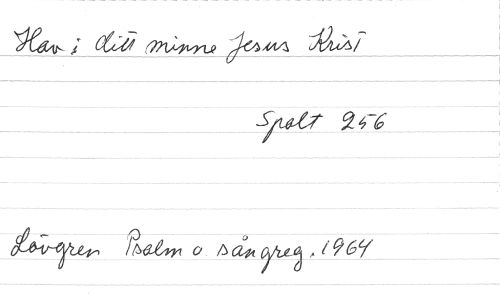 Hav i ditt minne Jesus Krist
Spalt 256
Lövgren Psalm o sångreg. 1964